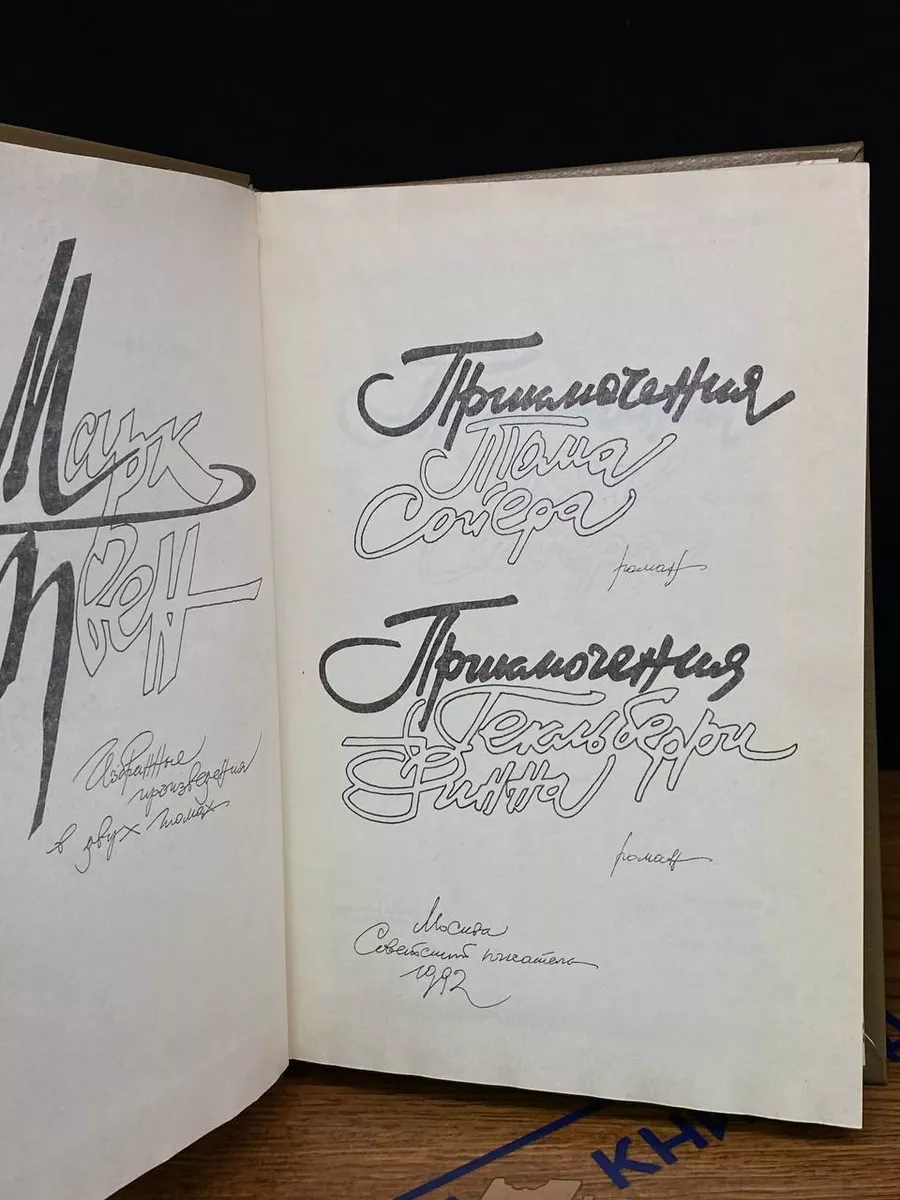 Марк
Твен
Избранные
произведения
в двух томах
Приключения
Тома
Сойера
роман
Приключения
Гекльберри
Финна
роман
Москва
Советский писатель
1992
КНИ